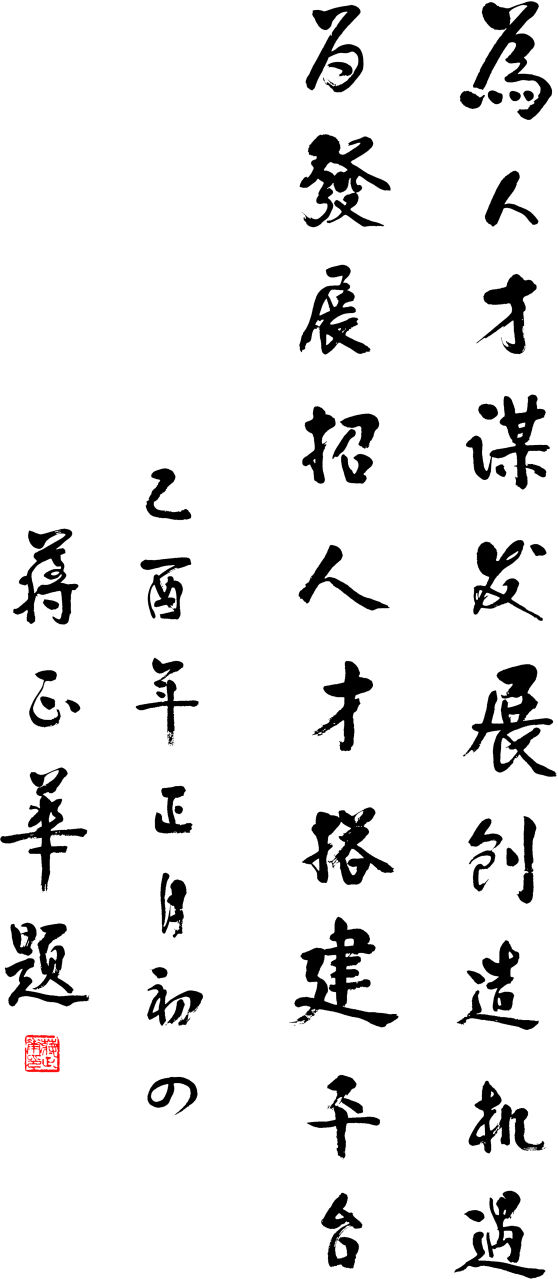 為人才谋发展创造机遇
为發展招人才搭建平台
乙酉年正月初四
蒋正華题